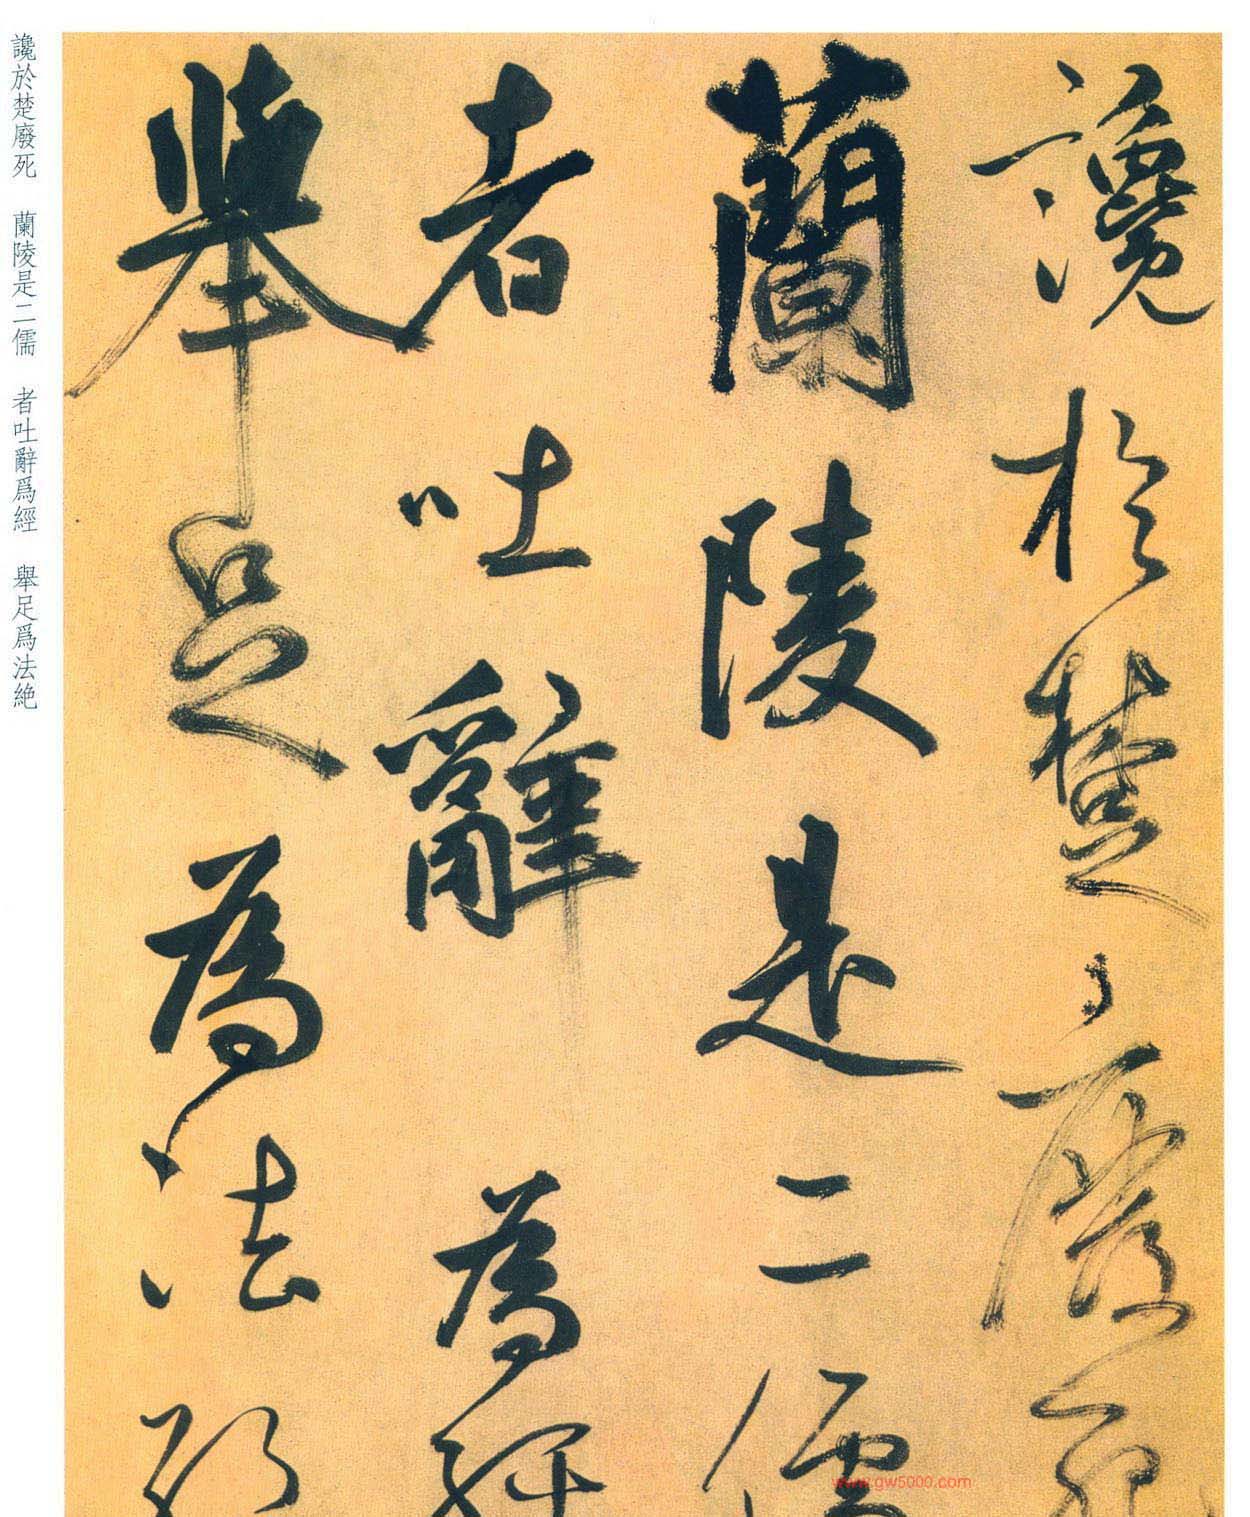 讒於楚廢死
蘭陵是二儒
者吐辭為經
舉足為法絕
讒於楚廢死　蘭陵是二儒　者吐辭爲經　舉足爲法絶
www.gw5000.com